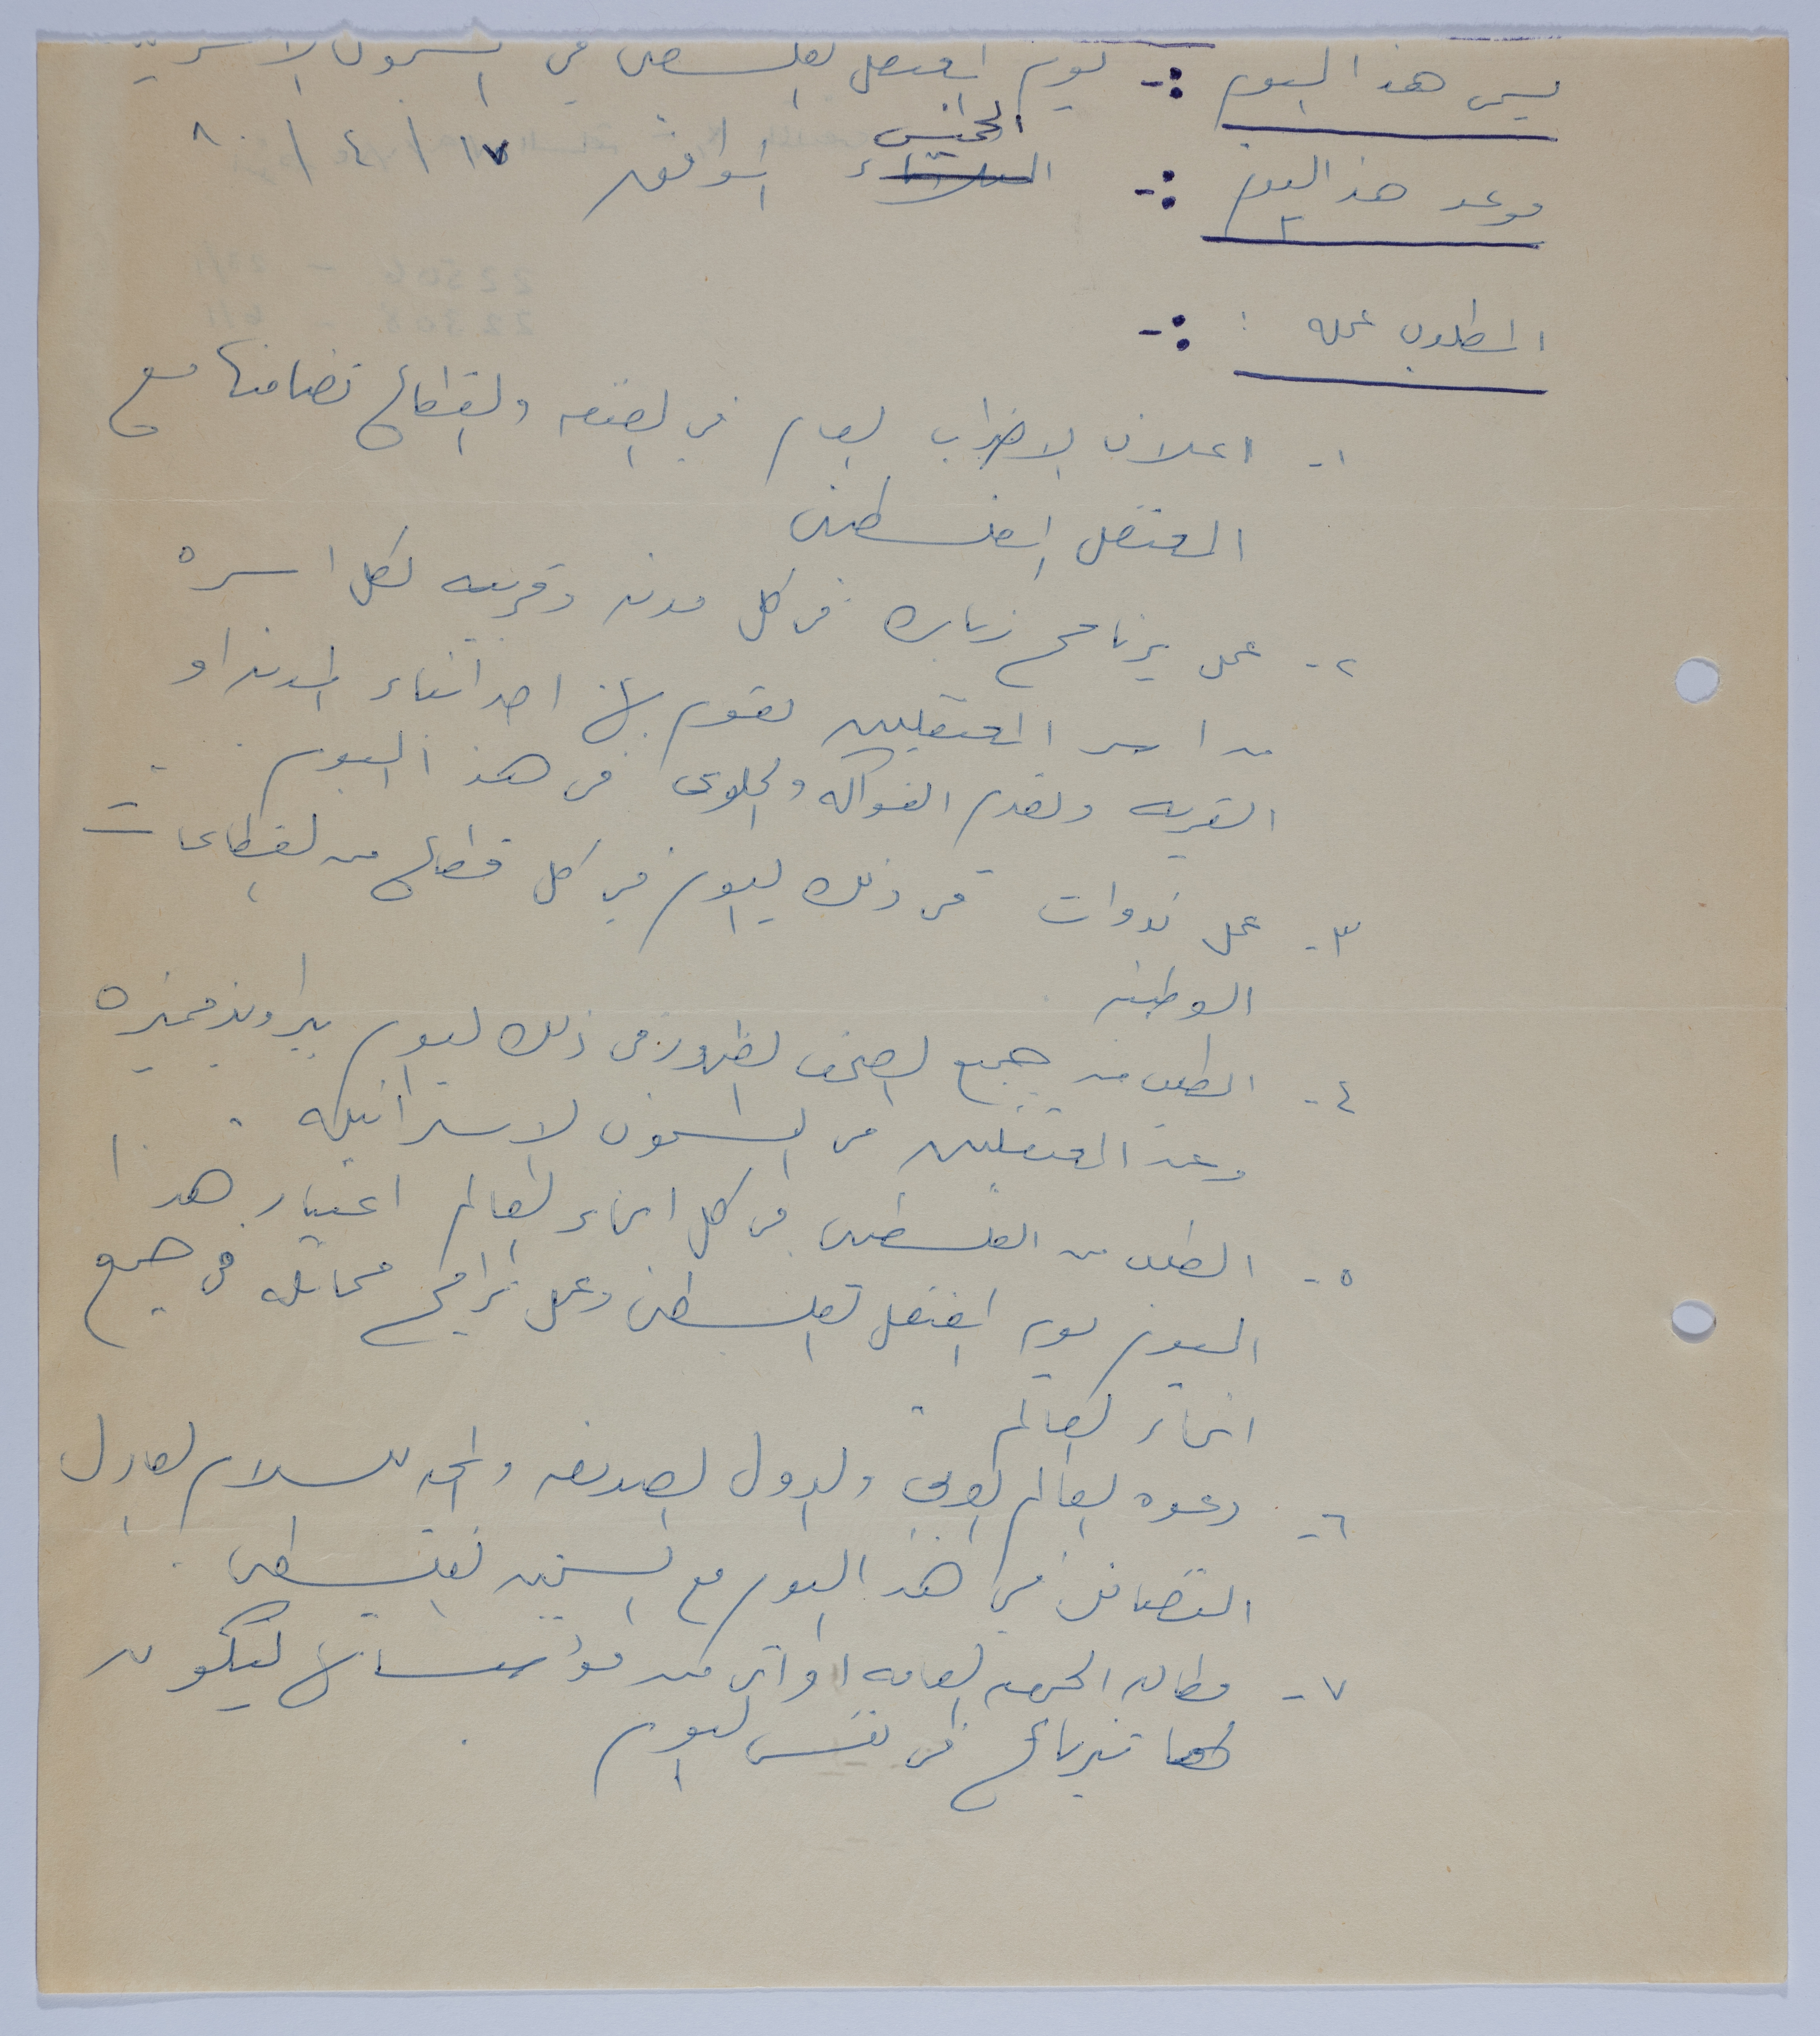 يسمى هذا اليوم :- يوم المعتقل الفلسطيني في السجون الاسرائيلية
الخميس
موعد هذا اليوم :- الثلاثاء الموافق ١٧ / ٤ / ٨٠
المطلوب عمله : :-
١- اعلان الاضراب العام في الضفه والقطاع تضامنا مع
المعتقل الفلسطيني
٢- عمل برنامج زياره في كل مدينه وقريه لكل اسره
من اسر المعتقلين تقوم بها احد ابناء المدينه او
القريه وتقدم الفواكه والحلوى في هذا اليوم .
٣- عمل ندوات في ذلك اليوم في كل قطاع من القطاعات
الوطنيه
٤- الطلب من جميع الصحف الظهور في ذلك اليوم براويز مميزه
وعدد المعتقلين في السجون الاسرائيليه .
٥- الطلب من الفلسطينين في كل انحاء العالم اعتبار هذا
اليوم يوم المعتقل الفلسطيني وعمل برامج مماثله في جميع
انحاء العالم .
٦- دعوه العالم العربي والدول الصديقه والمحبه للسلام العادل
التضامن في هذا اليوم مع السجين الفلسطيني .
٧- مطالبه الجمعيه العامه او اي من مؤسساتها ليكون
لها برنامج في نفس اليوم .